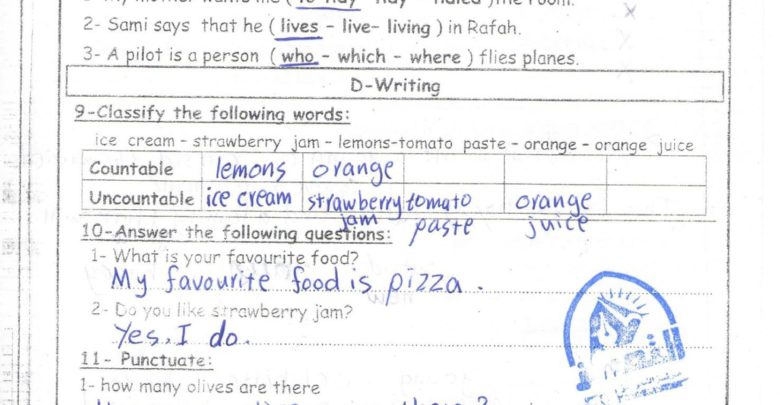 2- Sami says that he ( lives - live- living ) in Rafah.
3- A pilot is a person ( who - which - where ) flies planes.
D-Writing
9-Classify the following words:
ice cream - strawberry jam - lemons-tomato paste - orange - orange juice
Countable lemons orange
Uncountable ice cream strawberry jam tomato paste orange juice
10-Answer the following questions:
1- What is your favourite food?
My favourite food is pizza.
2- Do you like strawberry jam?
Yes, I do.
11- Punctuate:
1- how many olives are there